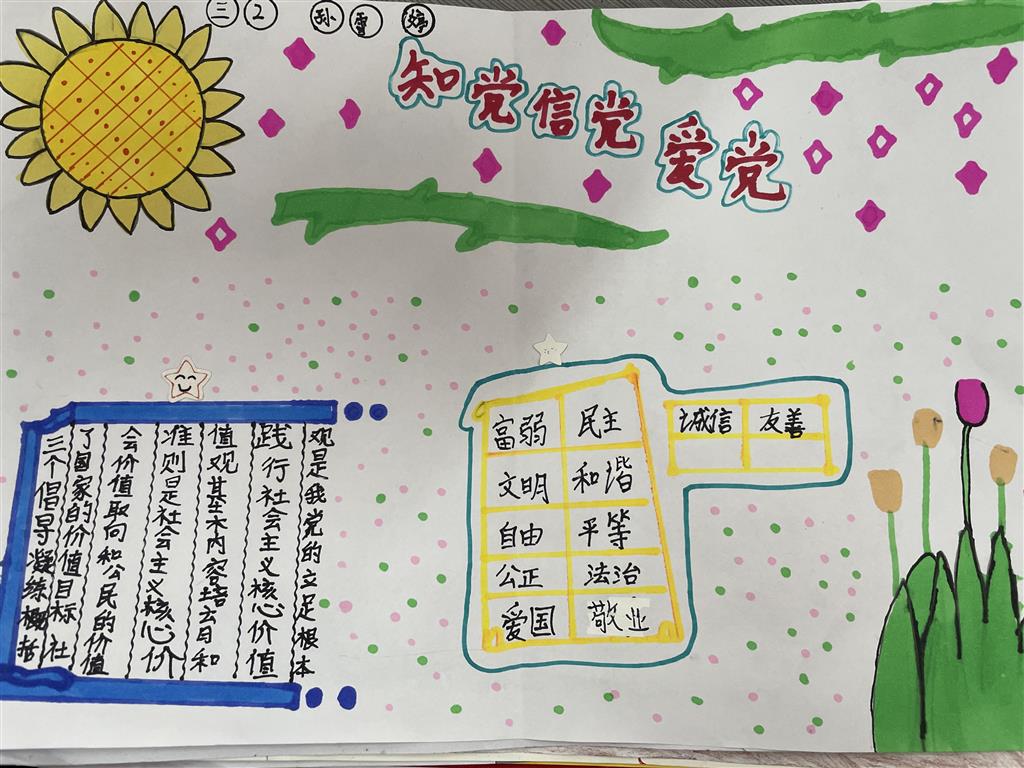 三2 孙雪婷
知党信党爱党
三个倡导凝练概括
了国家的价值目标社
会价值取向和公民的价值
准则是社会主义核心价
值观基本内容培育和
践行社会主义核心价值
观是我党的立足根本
富弱 民主
文明 和谐
自由 平等
公正 法治
爱国 敬业
诚信 友善